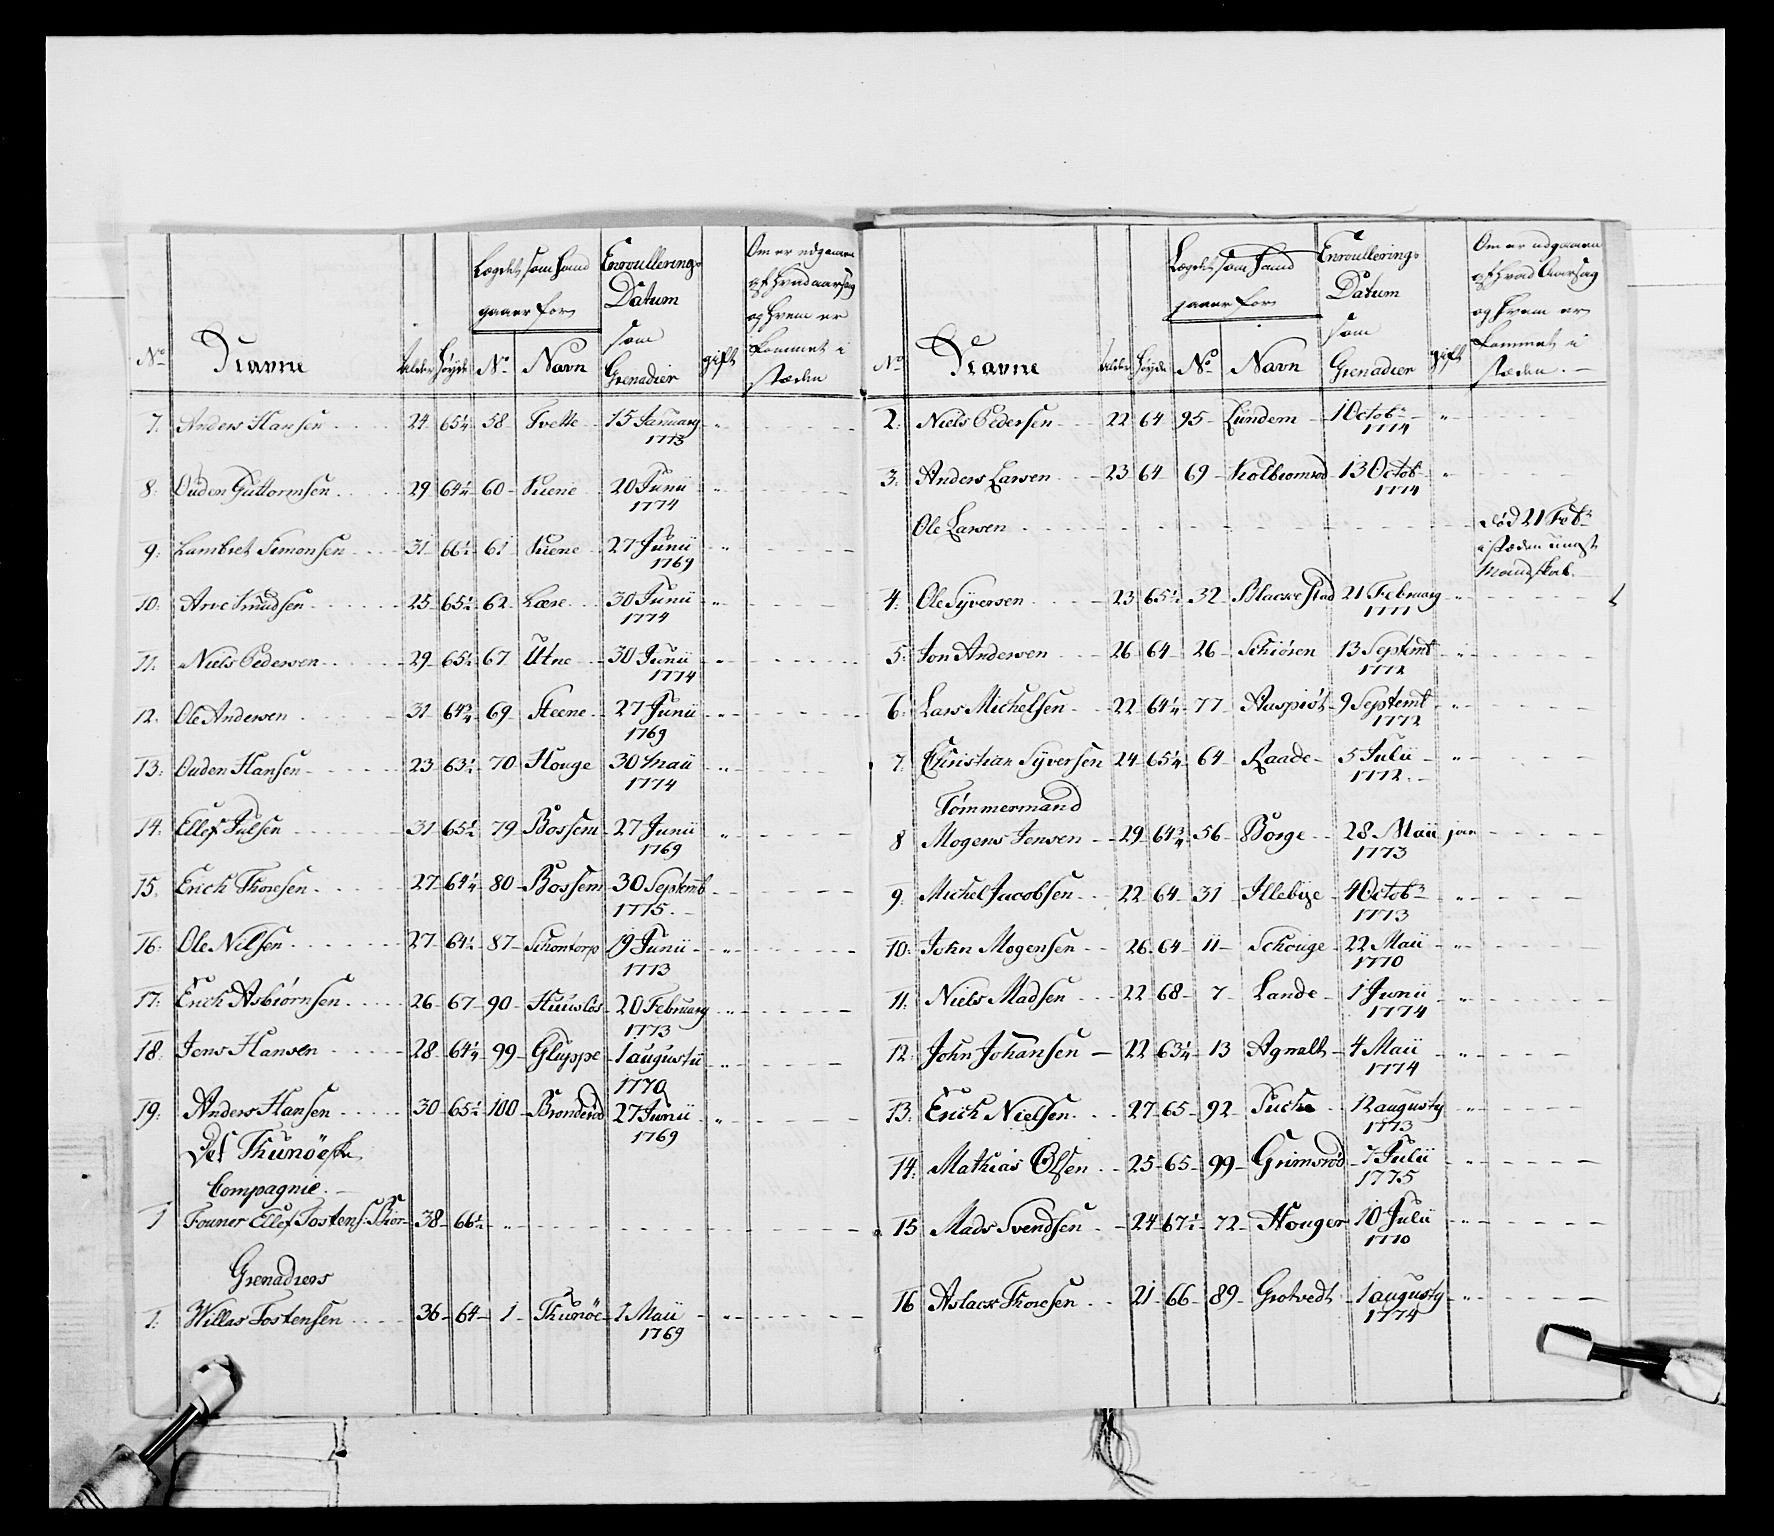 Lægdet som hand gaaer for
Enroullerings Datum som Grenadier
Om er udgaaen af hvad aarsag og hvem er kommet i stæden
No Navne Alder Høyde No Navn gift
7. Anders Hansen 24 65¼ 58 Tvette 15 January 1773
8. Ouden Guttormsen 29 64½ 60 Suene 20 Junii 1774
9. Lambret Simonsen 31 66½ 61 Suene 27 Junii 1769
10. Arve Knudsen 25 65½ 62 Lære 30 Junii 1774
11. Niels Pedersen 29 65½ 67 Utne 30 Junii 1774
12. Ole Andersen 31 64¾ 69 Steene 27 Junii 1769
13. Ouden Hansen 23 63½ 70 Houge 30 Maii 1774
14. Ellef Julsen 31 65½ 79 Bossem 27 Junii 1769
15. Erich Thoresen 27 64¼ 80 Bossem 30 Septemb 1775.
16. Ole Nilsen 27 64½ 87 Schontorp 19 Junii 1773
17. Erich Asbiørnsen 26 67 90 Huuslös 20 February 1773
18. Jens Hansen 28 64¼ 99 Gluppe 1 augustii 1770
19. Anders Hansen 30 65½ 100 Bronderöd 27 Junii 1769
Det Thunöeske
Compagnie.
1 Fourer Ellef Tostens: Biör 38 66½
Grenadiers
1. Willas Tostensen 36 64 1 Thunöe 1 Maii 1769
Lægdet som hand gaaer for
Enroullerings Datum som Grenadier
Om er udgaaen af hvad Aarsag og hvem er kommet i stæden.
No Navne Alder Høyde No Navn gift
2. Niels Pedersen 22 64 95 Lundem 1 Octobr 1774
3. Anders Larsen 23 64 69 Kolbiomrod 13 Octob 1774
Ole Larsen død 21 Febr
i stæden
Mandskab.
4. Ole Syversen 23 65½ 32 Blackestad 21 February 1771
5. Jon Andersen 26 64 26 Schiören 13 Septemb 1772
6. Lars Michelsen 22 64¼ 77 Haspiöt 9 Septemb 1772
7. Christian Syversen 24 65¼ 64 Raade 5 Julii 1772.
Tömmermand
8 Mogens Jensen 29 64¾ 56 Borge 28 Maii 1773 ja
9. Michel Jacobsen 22 64 31 Illebye 4 Octobr 1773
10. John Mogensen 26 64 11 Schouge 22 Maii 1770
11. Niels Madsen 22 68 7 Lande 1 Junii 1774
12. John Johansen 22 63¼ 13 Agnalt 4 Maii 1774
13. Erich Nielsen 27 65 92 12 augusty 1773
14. Mathias Olsen 25 65 99 Grimsröd 7 Julii 1775
15 Mads Svendsen 24 67½ 72 Houger 10 Julii 1770
16 Aslack Thoresen 21 66 89 Grotvedt 1 augusty 1774